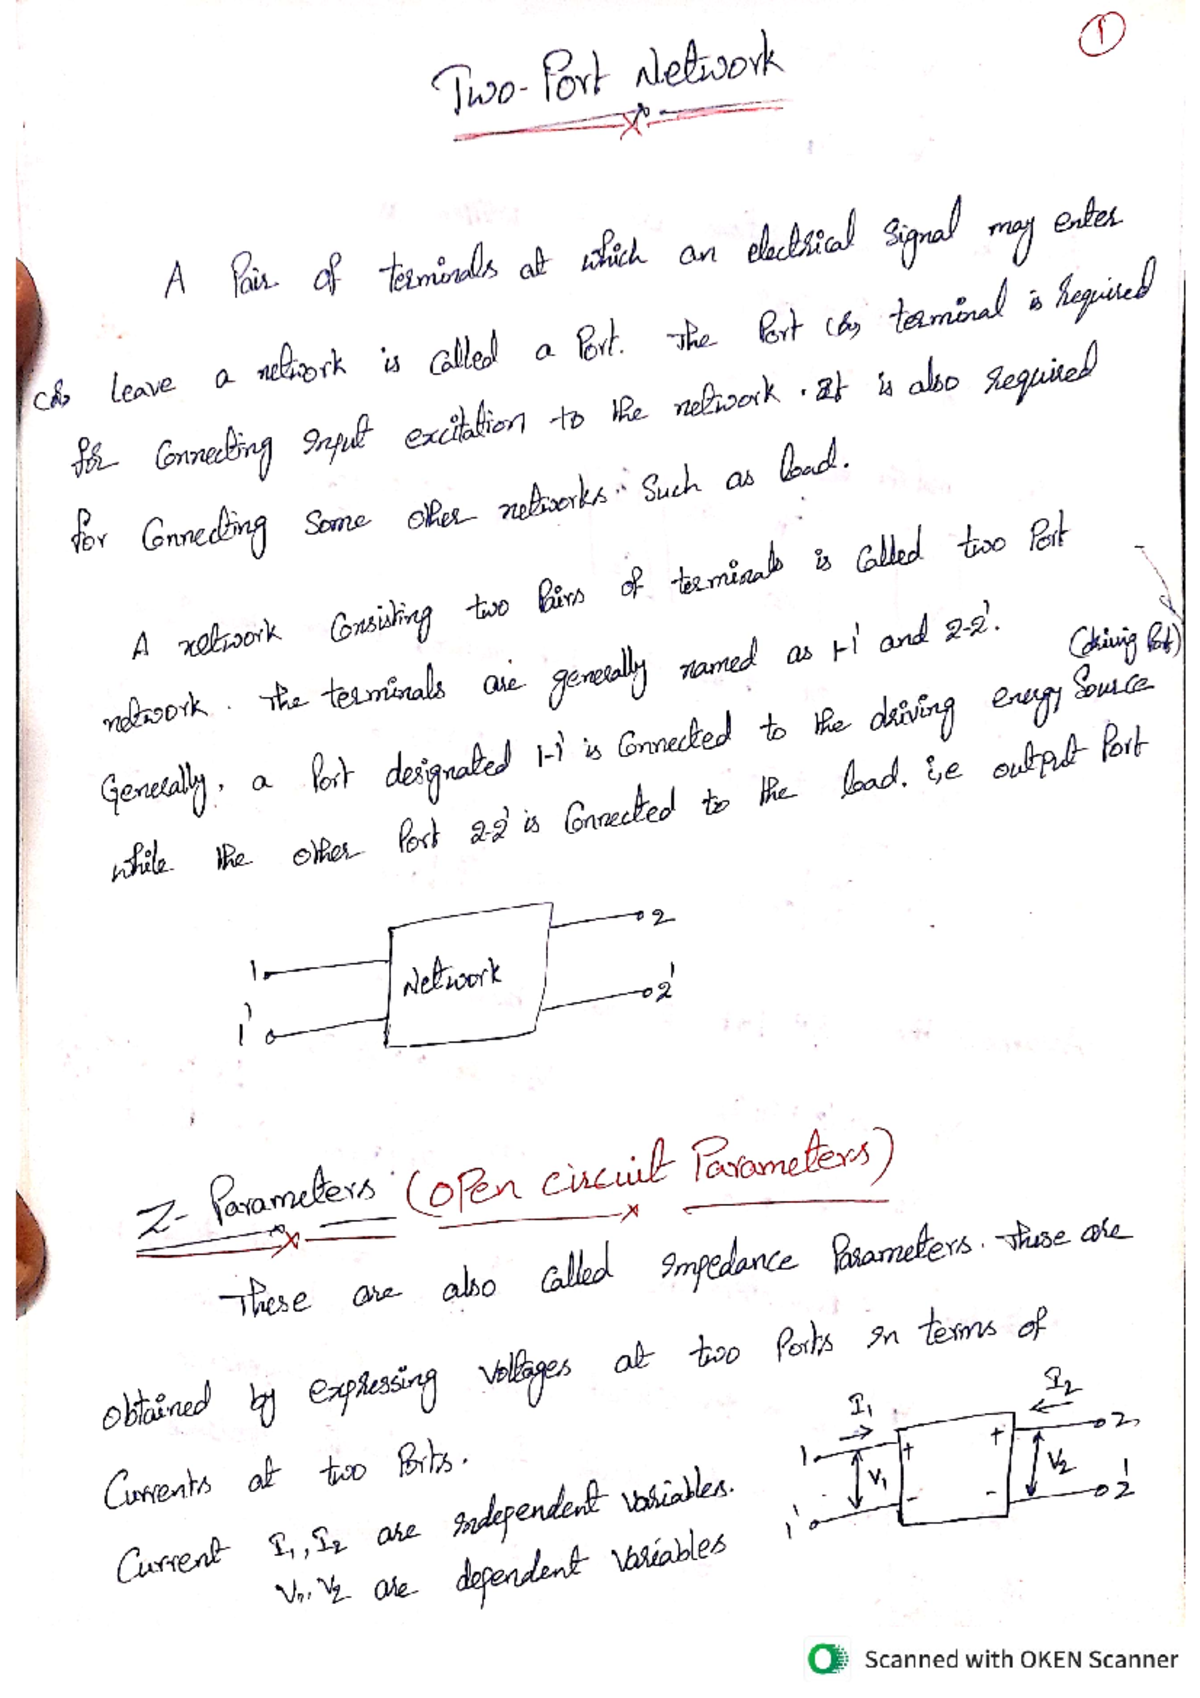 1
Two-Port Network
A Pair of terminals at which an electrical signal may enter
(or) leave a network is called a Port. The Port (or) terminal is required
for Connecting Input excitation to the network. It is also required
for Connecting Some other networks. Such as load.
A network Consisting two Pairs of terminals is Called two Port
network. The terminals are generally named as 1-1' and 2-2'.
(driving Port)
Generally, a Port designated 1-1' is Connected to the driving energy Source
while the other Port 2-2' is Connected to the load. i,e output Port
1
1'
Network
2
2'
Z-Parameters (open circuit Parameters)
These are also called Impedance Parameters. These are
obtained by expressing voltages at two Ports in terms of
Currents at two Ports.
Current I1, I2 are independent variables.
V1, V2 are dependent variables
I1
I2
1
+
+
2
V1
V2
1'
-
-
2'
Scanned with OKEN Scanner